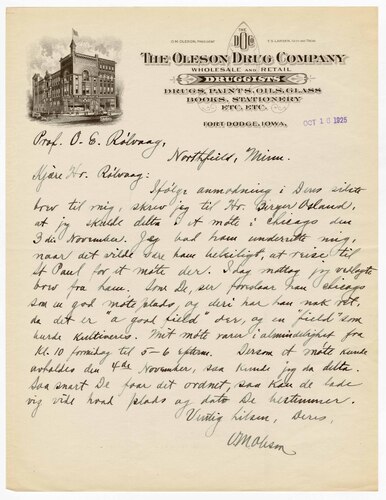 O. M. OLESON, President
THE
DOC
THE OLESON DRUG COMPANY
WHOLESALE AND RETAIL
DRUGGISTS
DRUGS, PAINTS, OILS, GLASS
BOOKS, STATIONERY
ETC. ETC.
FORT DODGE, IOWA,
OCT 16 1925
Prof. O. E. Rölvaag,
Northfield, Minn.
Kjære Hr. Rölvaag:
Ifølge anmodning i Deres sidste
brev til mig, skrev jeg til Hr. Birger Osland,
at jeg skulde delta i et møte i Chicago den
3die November. Jeg bad ham underrette mig,
naar det vilde være ham beleiligt, at reise til
St Paul for et møte der. I dag mottog jeg vedlagte
brev fra ham. Som De, ser foreslaar han Chicago
som en god møteplads, og deri har han nok ret,
da det er "a good field" der, og en "field" som
burde kultiveres. Mit møte varer i almindelighet fra
Kl. 10 formidag til 5–6 Efterm. Dersom et møte kunde
avholdes den 4de November, saa kunde jeg da delta.
Saa snart De faar det ordnet, saa kan De lade
vide hvad plads og dato De bestemmer.
Venlig hilsen, Deres,
O M Oleson